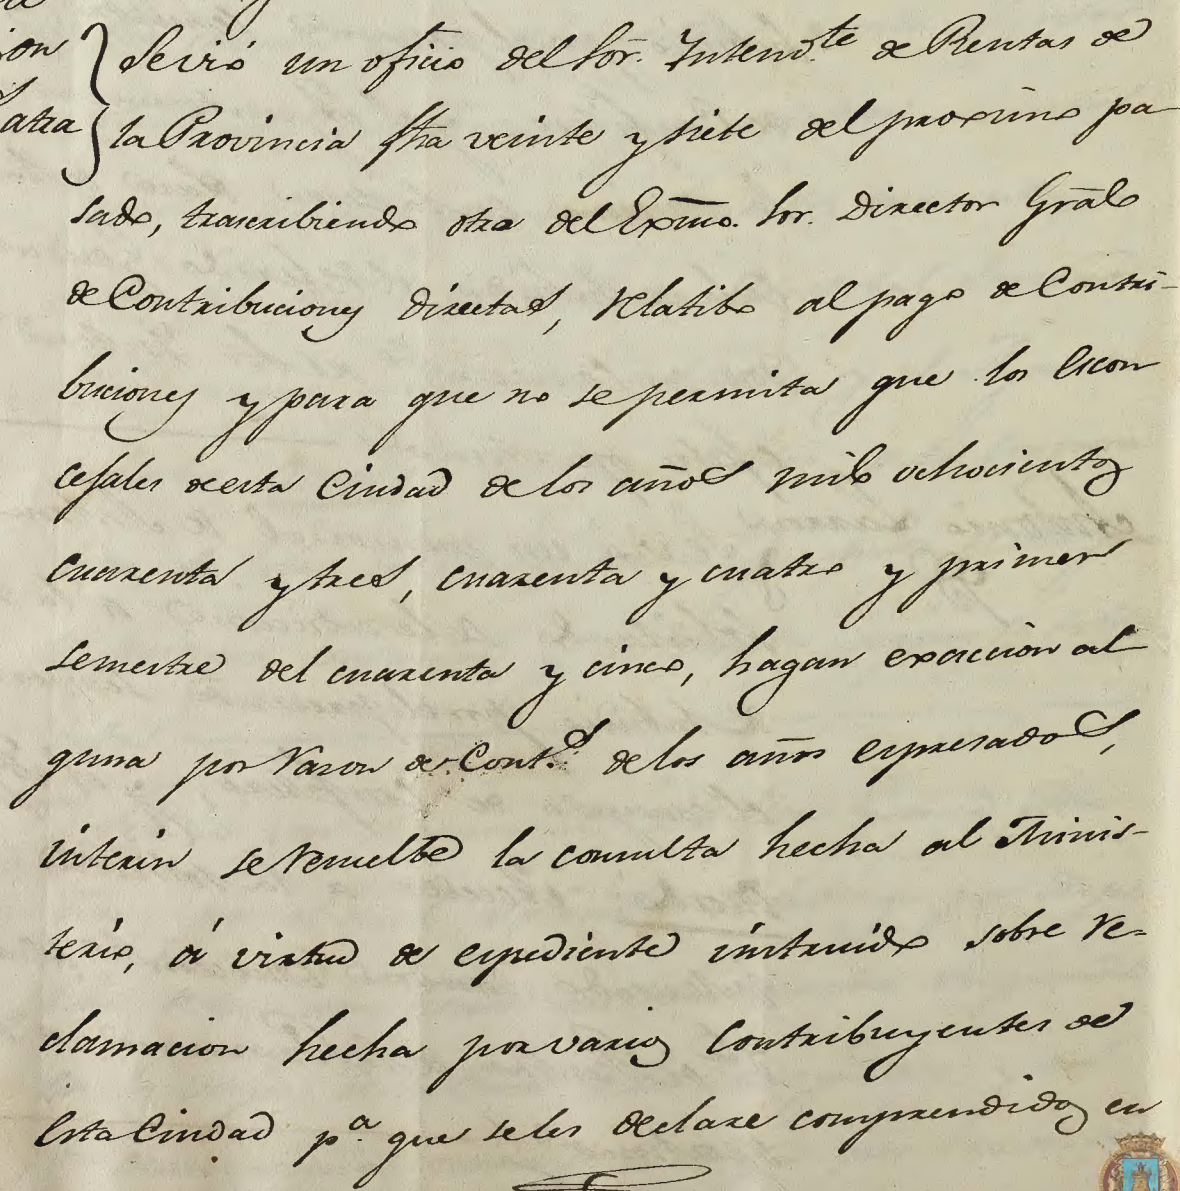 ion
atra
Se vió un oficio del Sor. Intend.te de Rentas de
la Provincia fha veinte y siete del proximo pa
sado, trascribiendo otra del Exmo. Sor. Director Gral
de Contribuciones directas, relatibo al pago de Contri-
buciones y para que no se permita que los Excon
cejales de esta Ciudad de los años mil ochocientos
cuarenta y tres, cuarenta y cuatro y primer
semestre del cuarenta y cinco, hagan exaccion al
guna por razon de Cont.s de los años espresados,
interin se resuelbe la consulta hecha al Minis-
terio, á virtud de espediente instruido sobre re-
clamacion hecha por varios Contribuyentes de
esta Ciudad p.a que se les declare comprendidos en